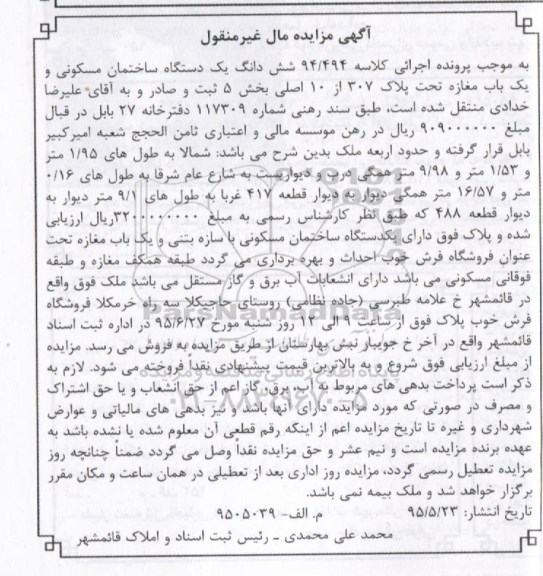 آگهی مزایده مال غیرمنقول
به موجب پرونده اجرائی کلاسه ۹۴/۴۹۴ شش دانگ یک دستگاه ساختمان مسکونی و
یک باب مغازه تحت پلاک ۳۰۷ از ۱۰ اصلی بخش ۵ ثبت و صادر و به آقای علیرضا
خدادی منتقل شده است، طبق سند رهنی شماره ۱۱۷۳۰۹ دفترخانه ۲۷ بابل در قبال
مبلغ ۹۰۹۰۰۰۰۰۰ ریال در رهن موسسه مالی و اعتباری ثامن الحجج شعبه امیرکبیر
بابل قرار گرفته و حدود اربعه ملک بدین شرح می باشد: شمالا به طول های ۱/۹۵ متر
و ۱/۵۳ متر و ۹/۹۸ متر همگی درب و دیواریست به شارع عام شرقا به طول های ۰/۱۶
متر و ۱۶/۵۷ متر همگی دیوار به دیوار قطعه ۴۱۷ غربا به طول های ۹/۱ متر دیوار به
دیوار قطعه ۴۸۸ که طبق نظر کارشناس رسمی به مبلغ ۳۲۰۰۰۰۰۰۰۰ریال ارزیابی
شده و پلاک فوق دارای یکدستگاه ساختمان مسکونی با سازه بتنی و یک باب مغازه تحت
عنوان فروشگاه فرش خوب احداث و بهره برداری می گردد طبقه همکف مغازه و طبقه
فوقانی مسکونی می باشد دارای انشعابات آب برق و گاز مستقل می باشد ملک فوق واقع
در قائمشهر خ علامه طبرسی (جاده نظامی) روستای حاجیکلا سه راه خرمکلا فروشگاه
فرش خوب پلاک فوق از ساعت ۹ الی ۱۲ روز شنبه مورخ ۹۵/۶/۲۷ در اداره ثبت اسناد
قائمشهر واقع در آخر خ جویبار نبش بهارستان از طریق مزایده به فروش می رسد. مزایده
از مبلغ ارزیابی فوق شروع و به بالاترین قیمت پیشنهادی نقداً فروخته می شود. لازم به
ذکر است پرداخت بدهی های مربوط به آب، برق، گاز اعم از حق انشعاب و یا حق اشتراک
و مصرف در صورتی که مورد مزایده دارای آنها باشد و نیز بدهی های مالیاتی و عوارض
شهرداری و غیره تا تاریخ مزایده اعم از اینکه رقم قطعی آن معلوم شده یا نشده باشد به
عهده برنده مزایده است و نیم عشر و حق مزایده نقداً وصل می گردد ضمناً چنانچه روز
مزایده تعطیل رسمی گردد، مزایده روز اداری بعد از تعطیلی در همان ساعت و مکان مقرر
برگزار خواهد شد و ملک بیمه نمی باشد.
تاریخ انتشار: ۹۵/۵/۲۳ م. الف- ۹۵۰۵۰۳۹
محمد علی محمدی ـ رئیس ثبت اسناد و املاک قائمشهر
ParsNamadData
۰۲۱-۸۸۳۴۹۶۷۰-۵